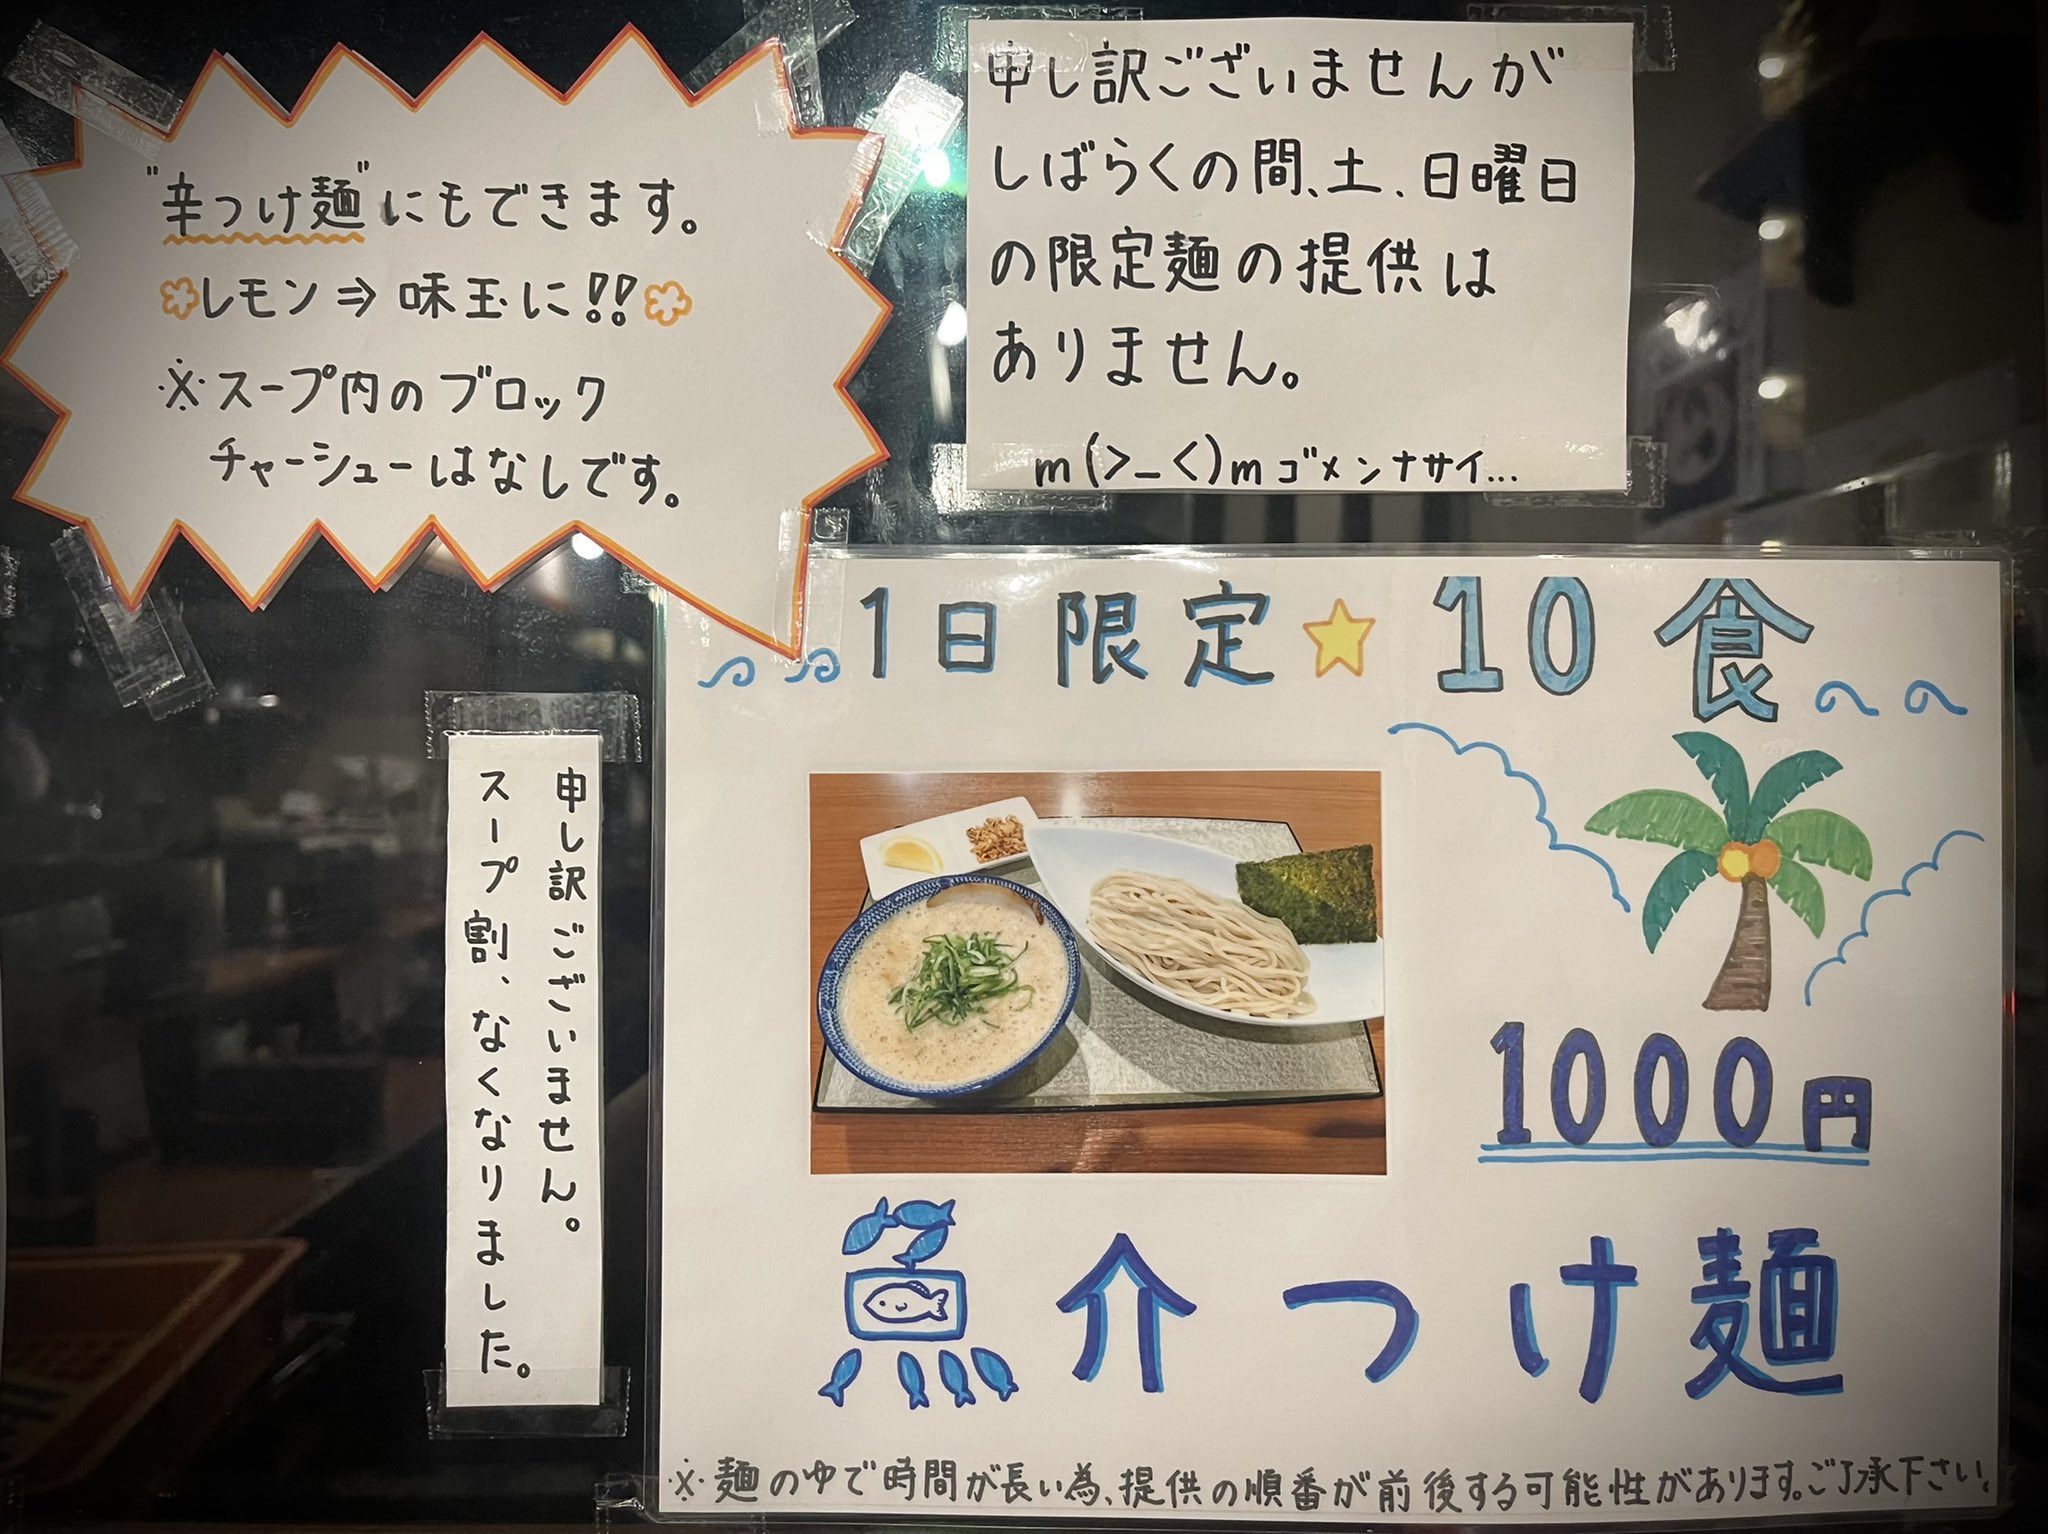 "辛つけ麺"にもできます。
レモン⇒味玉に!!
※スープ内のブロック
チャーシューはなしです。
申し訳ございませんが
しばらくの間、土、日曜日
の限定麺の提供は
ありません。
m(>_<)mゴメンナサイ...
申し訳ございません。
スープ割、なくなりました。
1日限定★10食
1000円
魚介つけ麺
※麺のゆで時間が長い為、提供の順番が前後する可能性があります。ご了承下さい。